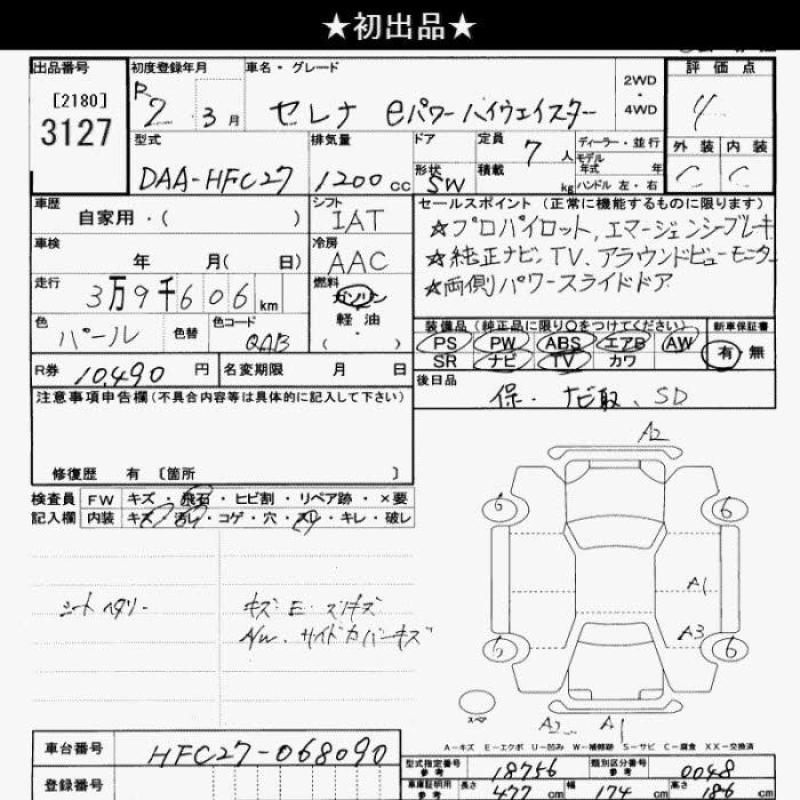 ★初出品★
出品番号
[2180]
3127
初度登録年月
R2 3月
車名・グレード
セレナ eパワーハイウェイスター
2WD
・
4WD
評価点
4
外装 内装
C C
型式
DAA-HFC27
排気量
1200cc
ドア
形状
SW
定員
7人
積載
kg
ディーラー・並行
モデル
年式 年
ハンドル 左・右
車歴
自家用・( )
シフト
IAT
車検
年 月( 日)
冷房
AAC
走行
3万9千606km
燃料
ガソリン
軽油
( ・ )
色
パール
色替
色コード
QAB
R券
10,490円
名変期限 月 日
セールスポイント(正常に機能するものに限ります)
☆プロパイロット、エマージェンシーブレーキ
☆純正ナビ、TV、アラウンドビューモニター
☆両側パワースライドドア
装備品(純正品に限り○をつけてください)
PS PW ABS エアB AW
SR ナビ TV カワ
新車保証書
有・無
後日品
保・ナビ取、SD
注意事項申告欄(不具合内容等は具体的に記入して下さい)
修復歴 有 〔箇所 〕
検査員 FW キズ・飛石・ヒビ割・リペア跡・×要
記入欄 内装 キズ・汚レ・コゲ・穴・スレ・キレ・破レ
シートヘタリー
キズ E・スリキズ
A/W・サイドカバーキズ
A2
6 6
A1
A3
6 6
スペア
A2 A1
A-キズ E-エクボ U-凹み W-補修跡 S-サビ C-腐食 XX-交換済
車台番号
HFC27-068090
登録番号
型式指定番号
参考
18756
類別区分番号
参考
0048
車庫証明用
参考
長さ 477cm 幅 174cm 高さ 186cm